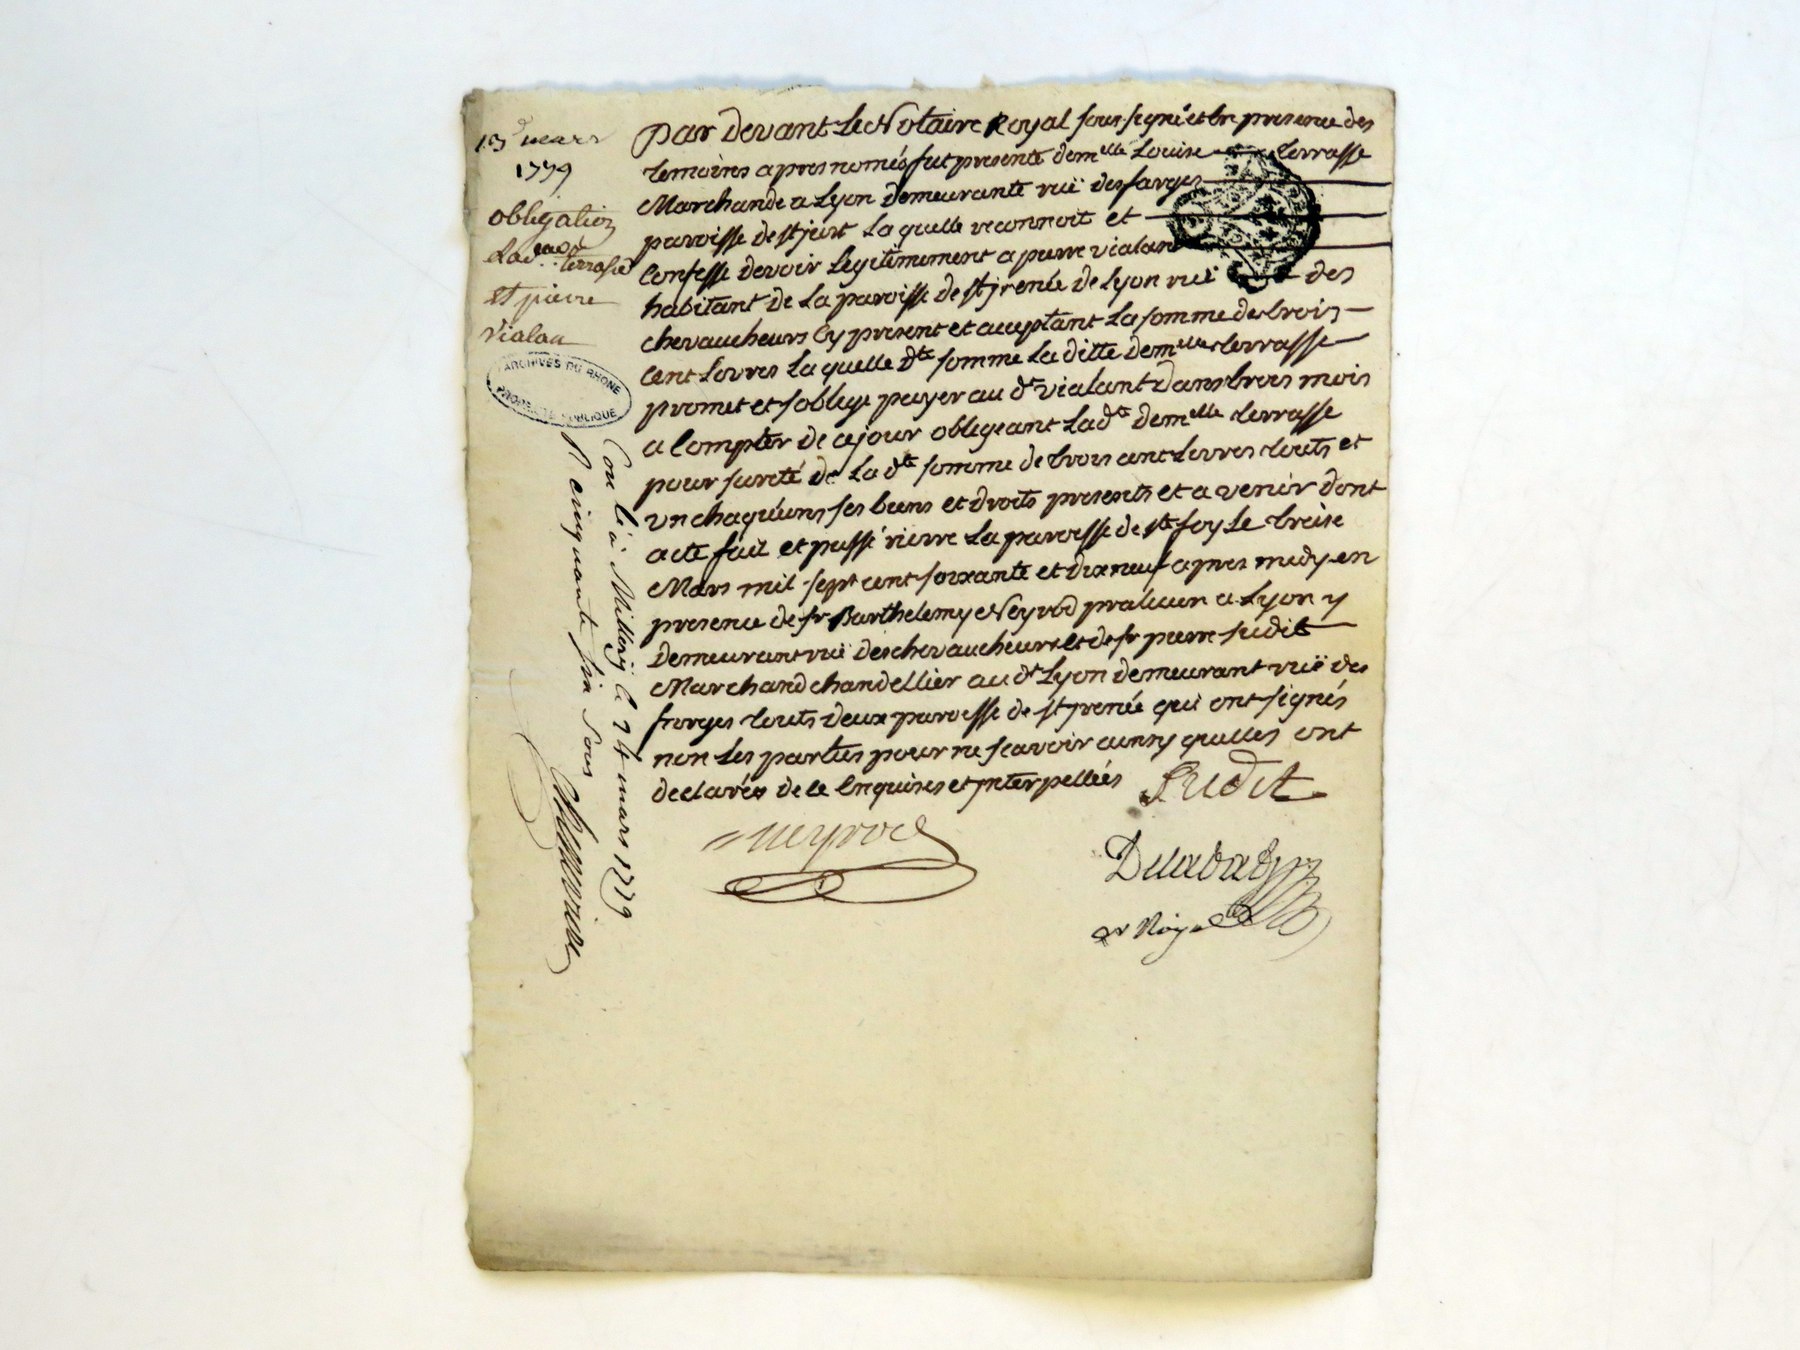 13 mars
1779
obligation
Lad. terrasse
et pierre
vialan
ARCHIVES DU RHONE
PROPRIÉTÉ PUBLIQUE
par devant Le Notaire Royal sous-signé et En presence des
temoins apres només fut presente demelle Louise terrasse
Marchande a Lyon demeurante ruë des farges
paroisse de st just La quelle reconnoit et
Confesse devoir Legitimement a pierre vialan
habitant de La paroisse de st jrenée de Lyon ruë des
chevaucheurs Cy present et acceptant La somme de trois
Cent Livres La quelle dte somme La ditte demelle terrasse
promet et soblige payer au dt vialant dans trois mois
a Compter de ce jour obligeant Ladte demelle terrasse
pour sureté de La dte somme de trois cent Livres touts et
vn chaquuns ses biens et droits presents et a venir dont
acte fait et passé riere La paroisse de ste foy Le treise
Mars mil sept cent soixante et dixneuf apres midy en
presence de sr Barthelemy Neyrod praticien a Lyon y
demeurant ruë des chevaucheurs et de sr pierre sudit
Marchand chandellier au dt Lyon demeurant ruë des
frorges touts deux paroisse de st jrenée qui ont signés
non Les parties pour ne scavoir ainsy quelles ont
declarées de ce Enquises et jnterpellées Sudit
neyrod
Delabat
nr Roya
Con lé à Millery le 24 mars 1779
R cinquante six sous